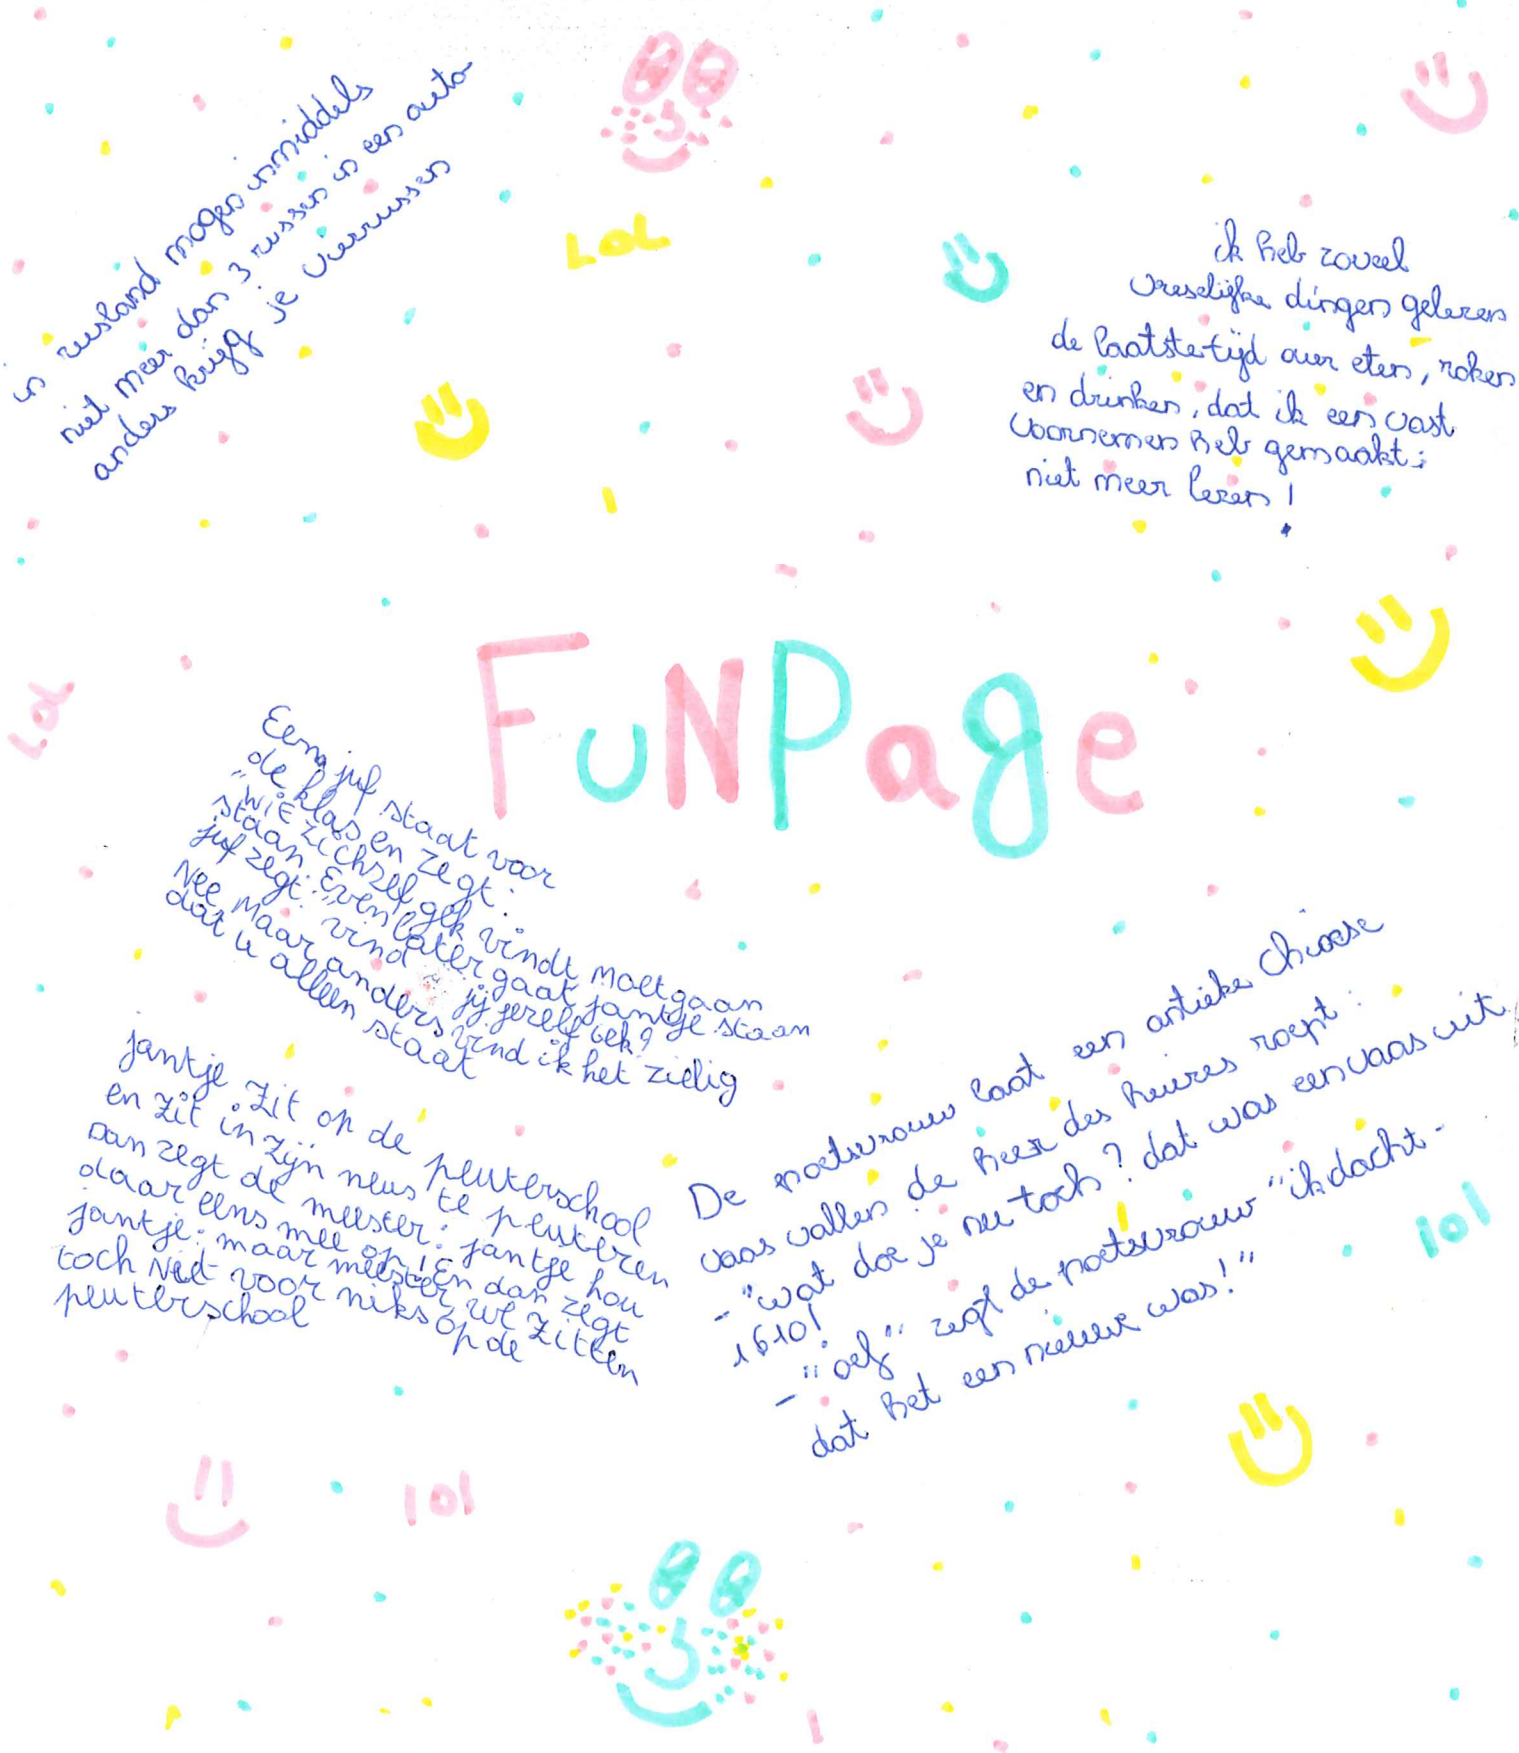 in rusland mogen inmiddels
niet meer dan 3 russen in een auto
anders krijg je vierrussen
LOL
ik heb zoveel
vreselijke dingen gelezen
de laatste tijd over eten, roken
en drinken, dat ik een vast
voornemen heb gemaakt:
niet meer lezen!
FuNPage
LOL
Een juf staat voor
de klas en zegt:
"wie zichzelf gek vindt moet gaan
staan. Even later gaat jantje staan
juf zegt: "vind jij jezelf gek?
Nee maar anders vind ik het zielig
dat u alleen staat
jantje zit op de peuterschool
en zit in zijn neus te peuteren
Dan zegt de meester: jantje hou
daar eens mee op! En dan zegt
jantje: maar meester we zitten
toch Niet voor niks op de
peuterschool
De poetsvrouw laat een antieke chinese
vaas vallen de heer des huizes roept:
- "wat doe je nu toch? dat was een vaas uit
1610!
- "oef" zegt de poetsvrouw "ik dacht
dat het een nieuwe was!"
lol
lol